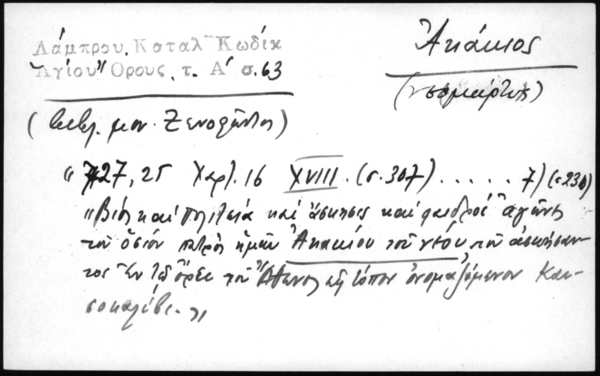 Λάμπρου, Καταλ Κωδίκ
Ἁγίου Ὄρους, τ. Α' σ. 63
Ἀκάκιος
(νεομάρτυς)
(βιβλ. μον. Ξενοφῶντος)
" 727, 25 Χαρτ. 16 XVIII. (σ. 307) ..... 7) (σ. 230)
"Βίος καὶ πολιτεία καὶ ἄσκησις καὶ φαιδροὶ ἀγῶνες
τοῦ ὁσίου πατρὸς ἡμῶν Ἀκακίου τοῦ νέου, τοῦ ἀσκήσαν-
τος ἐν τῷ ὄρει τοῦ Ἄθωνος εἰς τόπον ὀνομαζόμενον Καυ-
σοκαλύβι. "